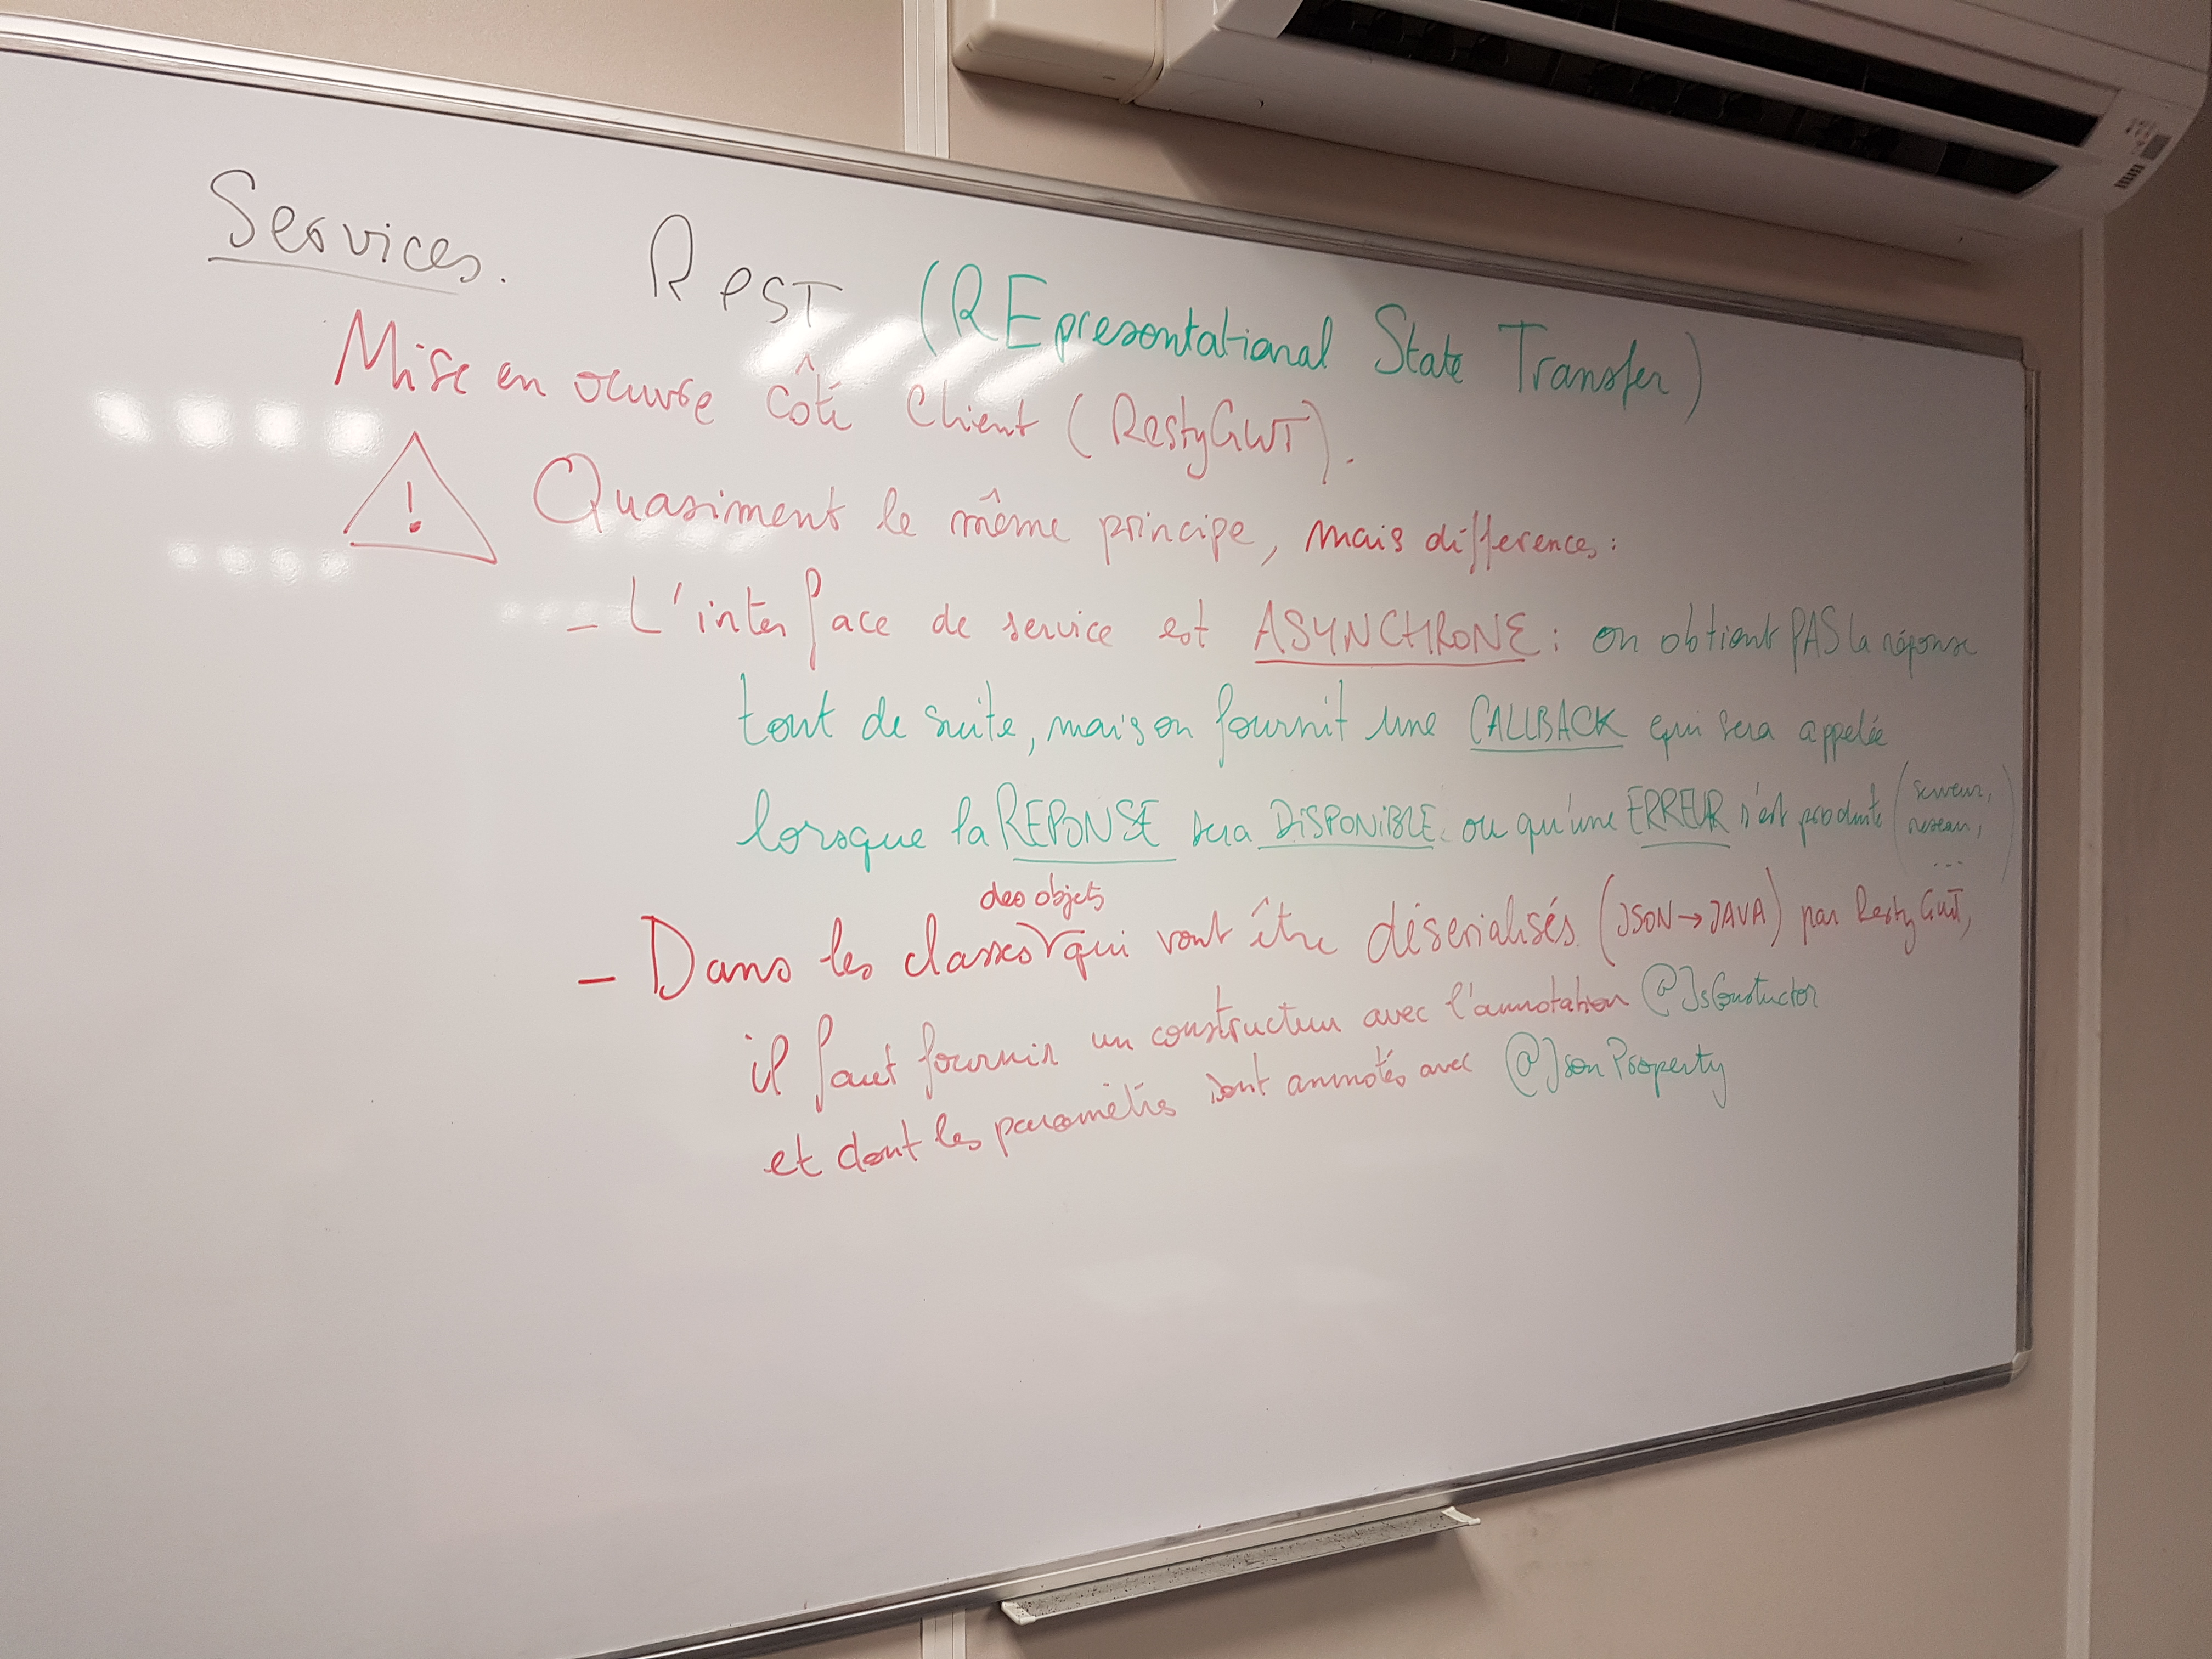 Services. ReST (REpresentational State Transfer)
Mise en oeuvre côté Client (RestyGWT).
! Quasiment le même principe, mais differences:
- L'interface de service est ASYNCHRONE : on obtient PAS la réponse
tout de suite, mais on fournit une CALLBACK qui sera appelée
lorsque la REPONSE sera DISPONIBLE. ou qu'une ERREUR s'est produite (serveur,
reseau,
...)
des objets
- Dans les classes qui vont être désérialisés (JSON → JAVA) par RestyGWT,
il faut fournir un constructeur avec l'annotation @JsConstuctor
et dont les paramètres sont annotés avec @JsonProperty